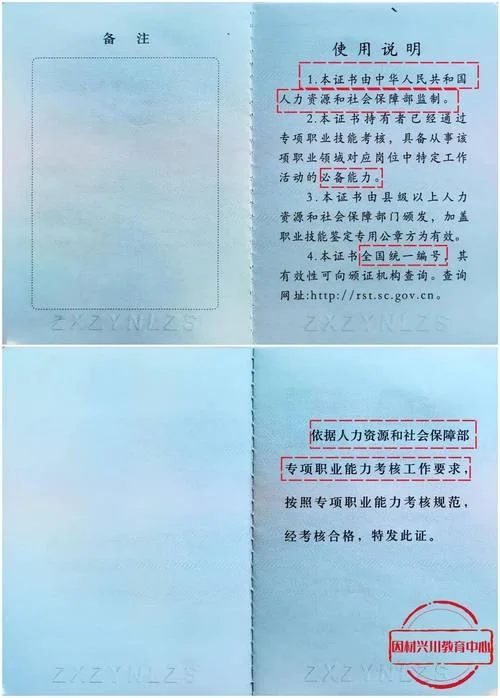 备注
使用说明
1.本证书由中华人民共和国
人力资源和社会保障部监制。
2.本证书持有者已经通过
专项职业技能考核，具备从事该
项职业领域对应岗位中特定工作
活动的必备能力。
3.本证书由县级以上人力
资源和社会保障部门颁发，加盖
职业技能鉴定专用公章方为有效。
4.本证书全国统一编号，其
有效性可向颁证机构查询。查询
网址:http://rst.sc.gov.cn。
ZXZYNLZS
ZXZYNLZS
依据人力资源和社会保障部
专项职业能力考核工作要求，
按照专项职业能力考核规范，
经考核合格，特发此证。
因材兴川教育中心
ZXZYNLZS
ZXZYNLZS